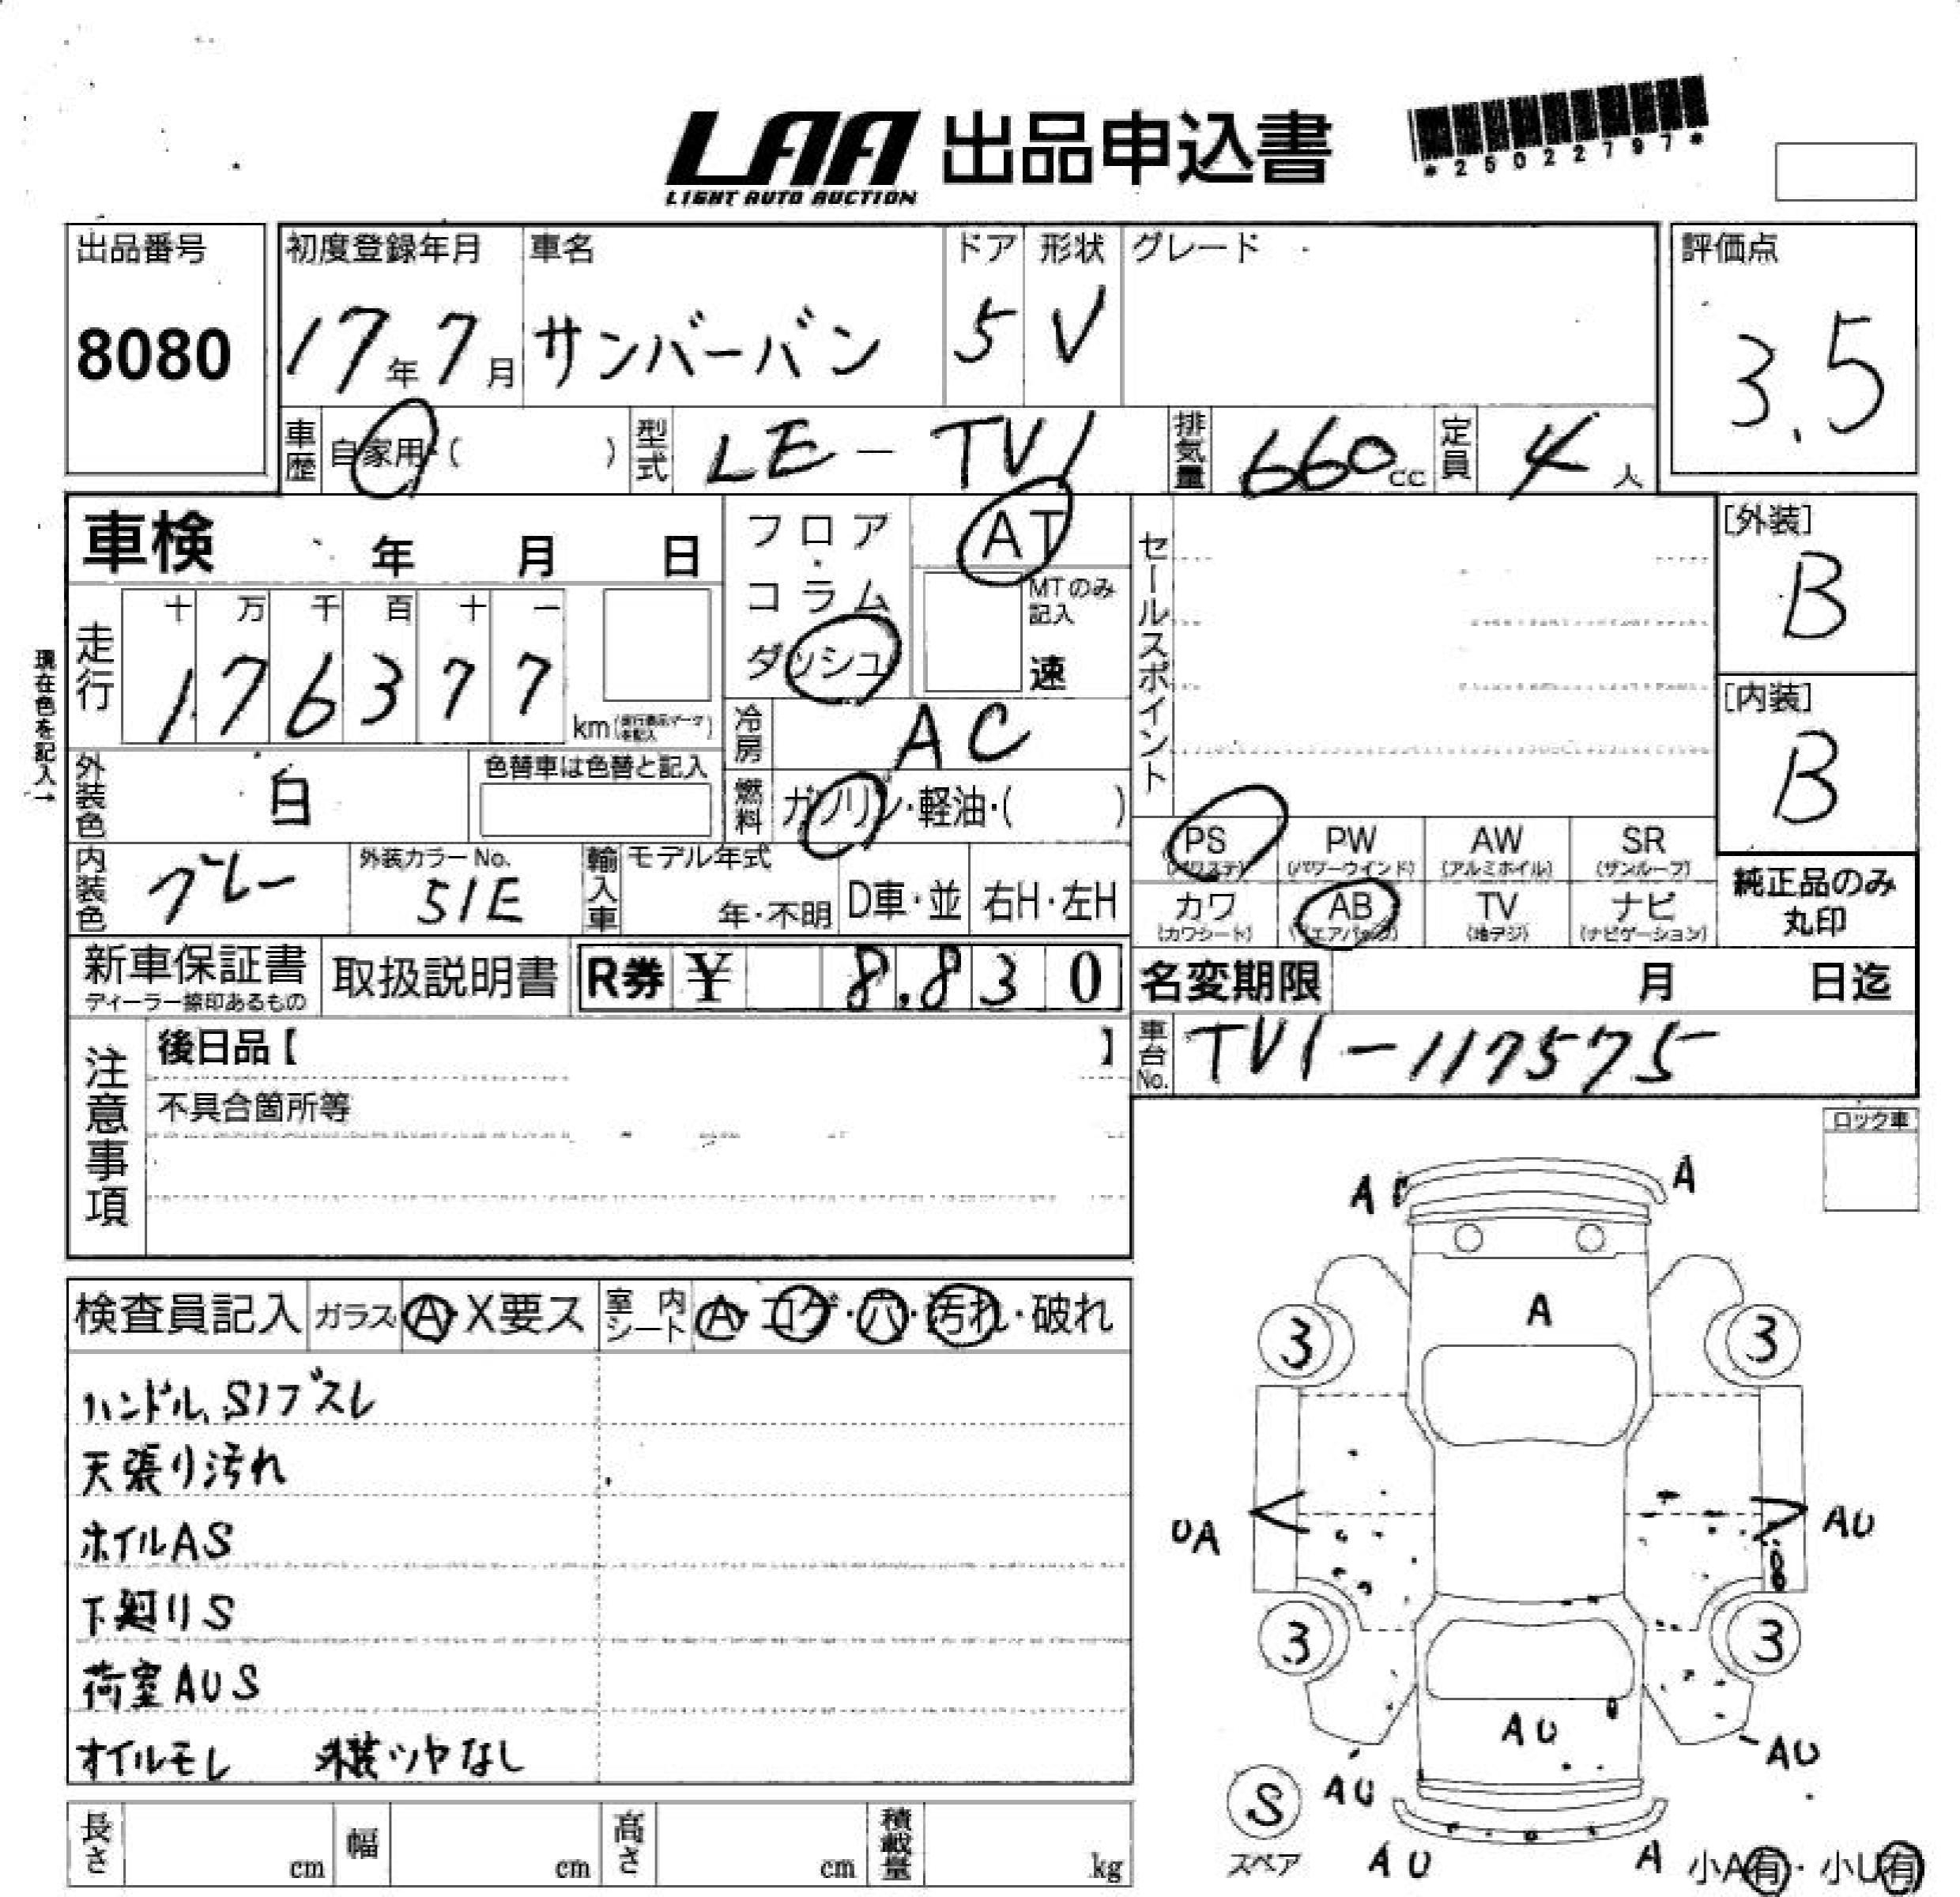 LAA 出品申込書
LIGHT AUTO AUCTION
*25022797*
出品番号
8080
初度登録年月
17年7月
車名
サンバーバン
ドア
5
形状
V
グレード
評価点
3.5
車歴
自家用・( )
型式
LE-TV1
排気量
660cc
定員
4人
車検 年 月 日
フロア・コラム
ダッシュ
AT
MTのみ記入
速
セールスポイント
[外装]
B
[内装]
B
現在色を記入→
走行
十 万 千 百 十 一
1 7 6 3 7 7
km
冷房
AC
外装色
白
色替車は色替と記入
燃料
ガソリン・軽油・( )
PS
(パワステ)
PW
(パワーウインド)
AW
(アルミホイル)
SR
(サンルーフ)
カワ
(カワシート)
AB
(エアバッグ)
TV
(地デジ)
ナビ
(ナビゲーション)
純正品のみ
丸印
内装色
グレー
外装カラーNo.
51E
輸入車
モデル年式
年・不明
D車・並
右H・左H
新車保証書
ディーラー捺印あるもの
取扱説明書
R券 ¥ 8.830
名変期限 月 日迄
車台No.
TV1-117575
注意事項
後日品【 】
不具合箇所等
ロック車
検査員記入
ガラス
A・X要ス
室内シート
A・コゲ・穴・汚れ・破れ
ハンドル、Sノブスレ
天張り汚れ
ホイルAS
下廻りS
荷室AUS
オイルモレ 外装ツヤなし
長さ cm
幅 cm
高さ cm
積載量 kg
A A
A
3 3
UA AU
3 3
AU
AU AU
S
スペア
AU A
小A有・小U有